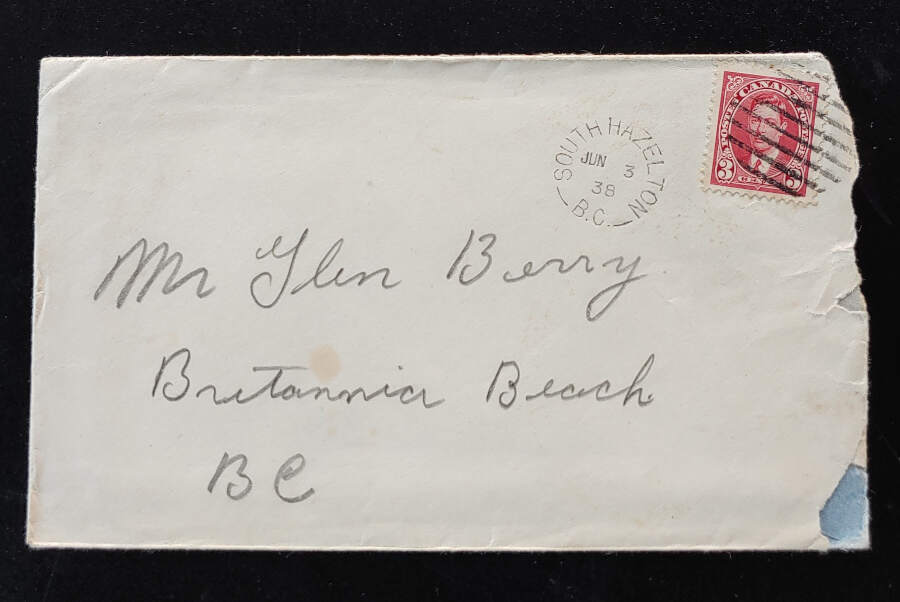 POSTES CANADA POSTAGE
3 CENTS 3
SOUTH HAZELTON
JUN 3
38
B.C.
Mr Glen Berry
Britannia Beach
BC